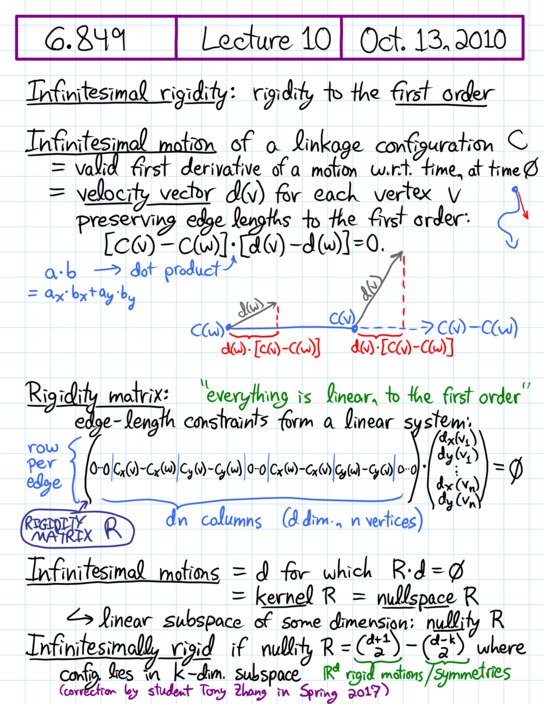 6.849 Lecture 10 Oct. 13, 2010
Infinitesimal rigidity: rigidity to the first order
Infinitesimal motion of a linkage configuration C
= valid first derivative of a motion w.r.t. time, at time ∅
= velocity vector d(v) for each vertex v
preserving edge lengths to the first order:
[C(v) – C(w)]·[d(v) – d(w)] = 0.
a·b → dot product
= ax·bx + ay·by
d(w)
d(v)
C(w) C(v) → C(v) – C(w)
d(w)·[C(v)-C(w)] d(v)·[C(v)-C(w)]
Rigidity matrix: "everything is linear, to the first order"
edge-length constraints form a linear system:
row per edge
(0–0|Cx(v)–Cx(w)|Cy(v)–Cy(w)|0–0|Cx(w)–Cx(v)|Cy(w)–Cy(v)|0–0) · (dx(v1) dy(v1) ⋮ dx(vn) dy(vn)) = ∅
RIGIDITY MATRIX R
dn columns (d dim., n vertices)
Infinitesimal motions = d for which R·d = ∅
= kernel R = nullspace R
↳ linear subspace of some dimension: nullity R
Infinitesimally rigid if nullity R = (d+1 2) – (d–k 2) where
config lies in k-dim. subspace ℝᵈ rigid motions/symmetries
(correction by student Tony Zhang in Spring 2017)